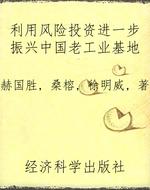 利用风险投资进一步
振兴中国老工业基地
赫国胜，桑榕，徐明威，著
经济科学出版社